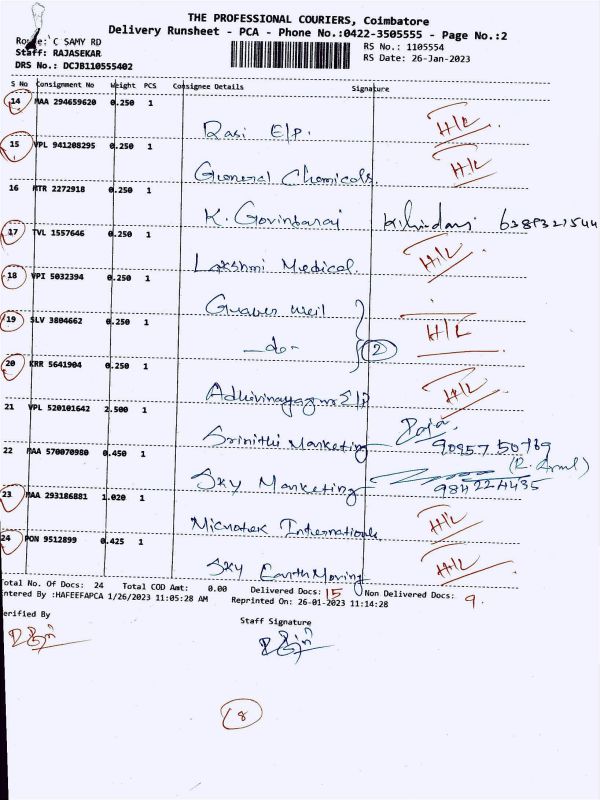 THE PROFESSIONAL COURIERS, Coimbatore
Delivery Runsheet - PCA - Phone No.:0422-3505555 - Page No.:2
C SAMY RD
Staff: RAJASEKAR
DRS No.: DCJB110555402
RS No.: 1105554
RS Date: 26-Jan-2023
S No Consignment No Weight PCS Consignee Details Signature
14 MAA 294659620 0.250 1
Rasi E/P. H/L
15 VPL 941208295 0.250 1
General Chemicals. H/L
16 MTR 2272918 0.250 1
K. Govindaraj
17 TVL 1557646 0.250 1
Lakshmi Medical H/L
18 VPI 5032394 0.250 1
19 SLV 3804662 0.250 1
-do- 2 H/L
20 KRR 5641904 0.250 1
H/L
21 VPL 520101642 2.500 1
Srinithi Marketing Raja. 90957 50769
22 MAA 570070980 0.450 1
Sky Marketing
23 MAA 293186881 1.020 1
Micnotek International H/L
24 PON 9512899 0.425 1
Sky Earth Moving H/L
Total No. Of Docs: 24 Total COD Amt: 0.00 Delivered Docs: 15 Non Delivered Docs: 9.
Entered By :HAFEEFAPCA 1/26/2023 11:05:28 AM Reprinted On: 26-01-2023 11:14:28
Verified By Staff Signature
8